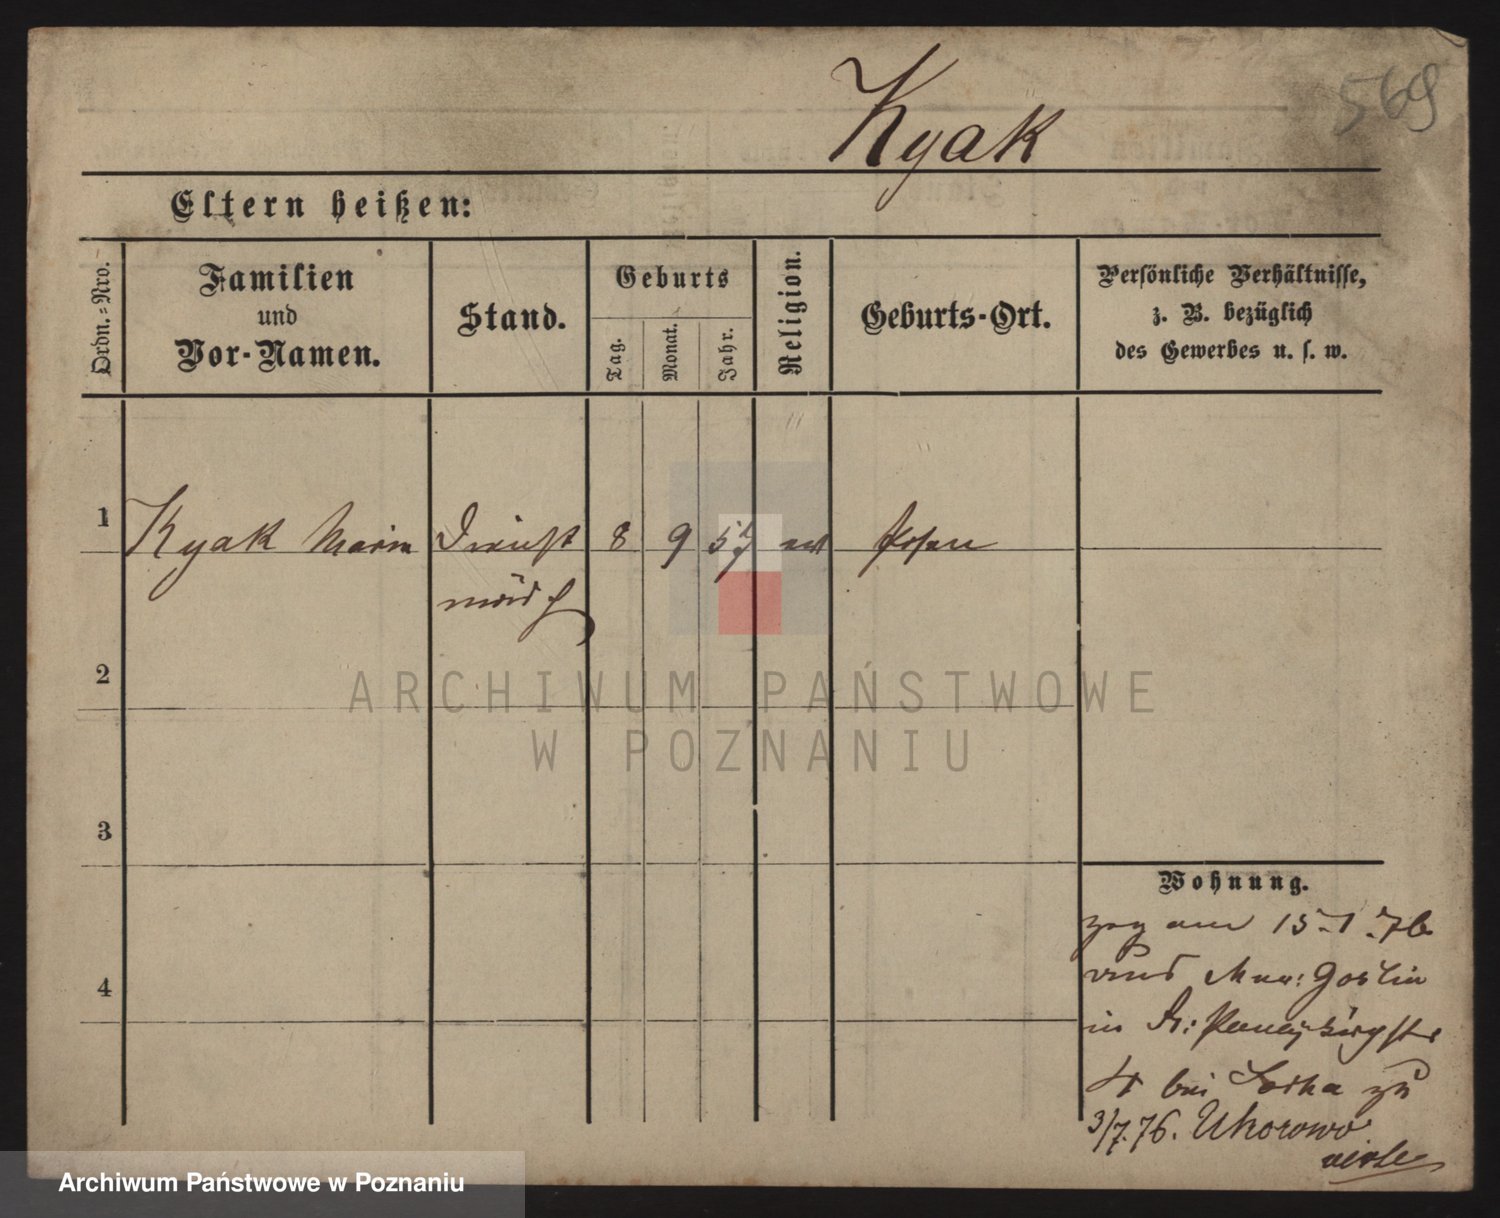 Kyak
569
Eltern heißen:
Ordn.=Nro.
Familien
und
Vor-Namen.
Stand.
Geburts
Tag.
Monat.
Jahr.
Religion.
Geburts-Ort.
Persönliche Verhältnisse,
z. B. bezüglich
des Gewerbes u. s. w.
1
Kyak Maria Dienst 8 9 57 Posen
mädch
2
ARCHIWUM PAŃSTWOWE
W POZNANIU
3
Wohnung.
zog am 15-1.76
Mur: Goslin
4
in St:
4 bei zu
3/7.76. Uhorowo
Archiwum Państwowe w Poznaniu